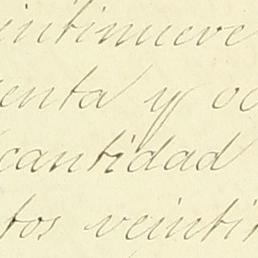 intinueve
enta y oc
cantidad
tos veintin